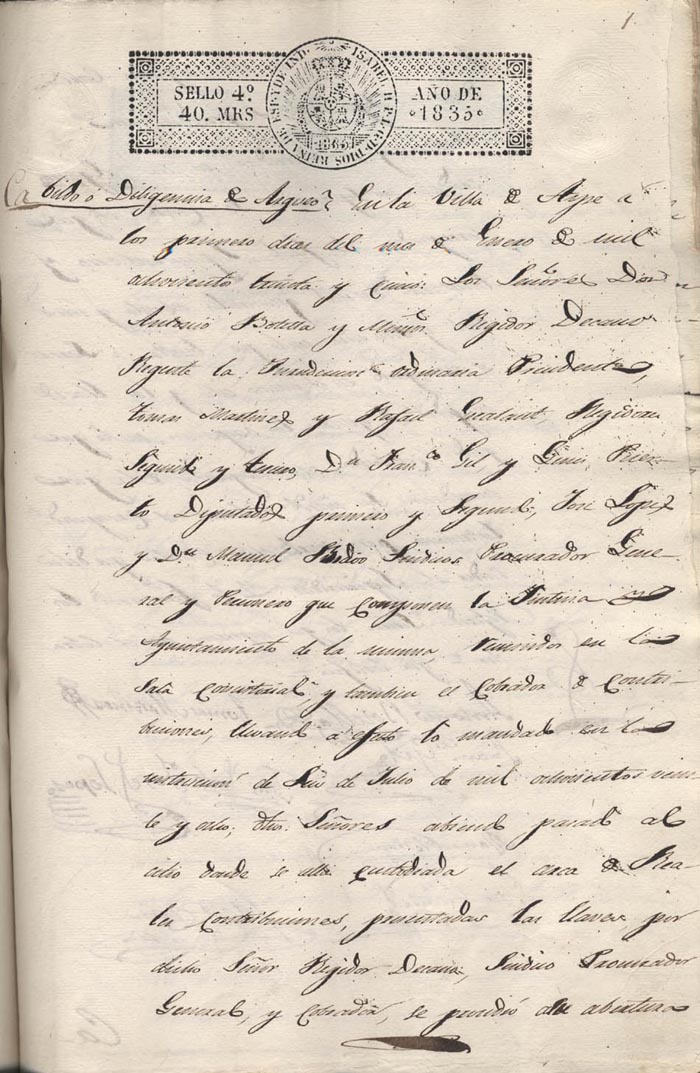 1
SELLO 4º
40. MRS
ISABEL II P. L. G. D. DIOS REINA DE ESP. Y DE IND.
AÑO DE
1835
Cabildo ó Diligencia de Arqueo En la Villa de Aspe a
los primero dias del mes de Enero de mil
ochocientos treinta y cinco: Los Señores Don
Antonio Botella y Regidor Decano
Regente la Jurisdiccion ordinaria Presidente,
Tomas Martinez y Rafael Regidores
Segundo y tercero, Dn Franco Gil y Gines
to Diputados primero y Segundo, José Lopez
y Dn Manuel Sindicos Procurador Gene-
ral y Personero que componen la
Ayuntamiento de la misma, reunidos en la
Sala Consistorial, y tambien el Cobrador de Contri-
buciones, llevando a efecto lo mandado en la
instruccion de Seis de Julio de mil ochocientos vein-
te y ocho; dhos. Señores abiendo pasado al
citio donde se alla custodiada el arca de Rea-
les Contribuciones, presentadas las llaves por
dicho Señor Regidor Decano, Sindico Procurador
General, y Cobrador, se prosedió a su abertura